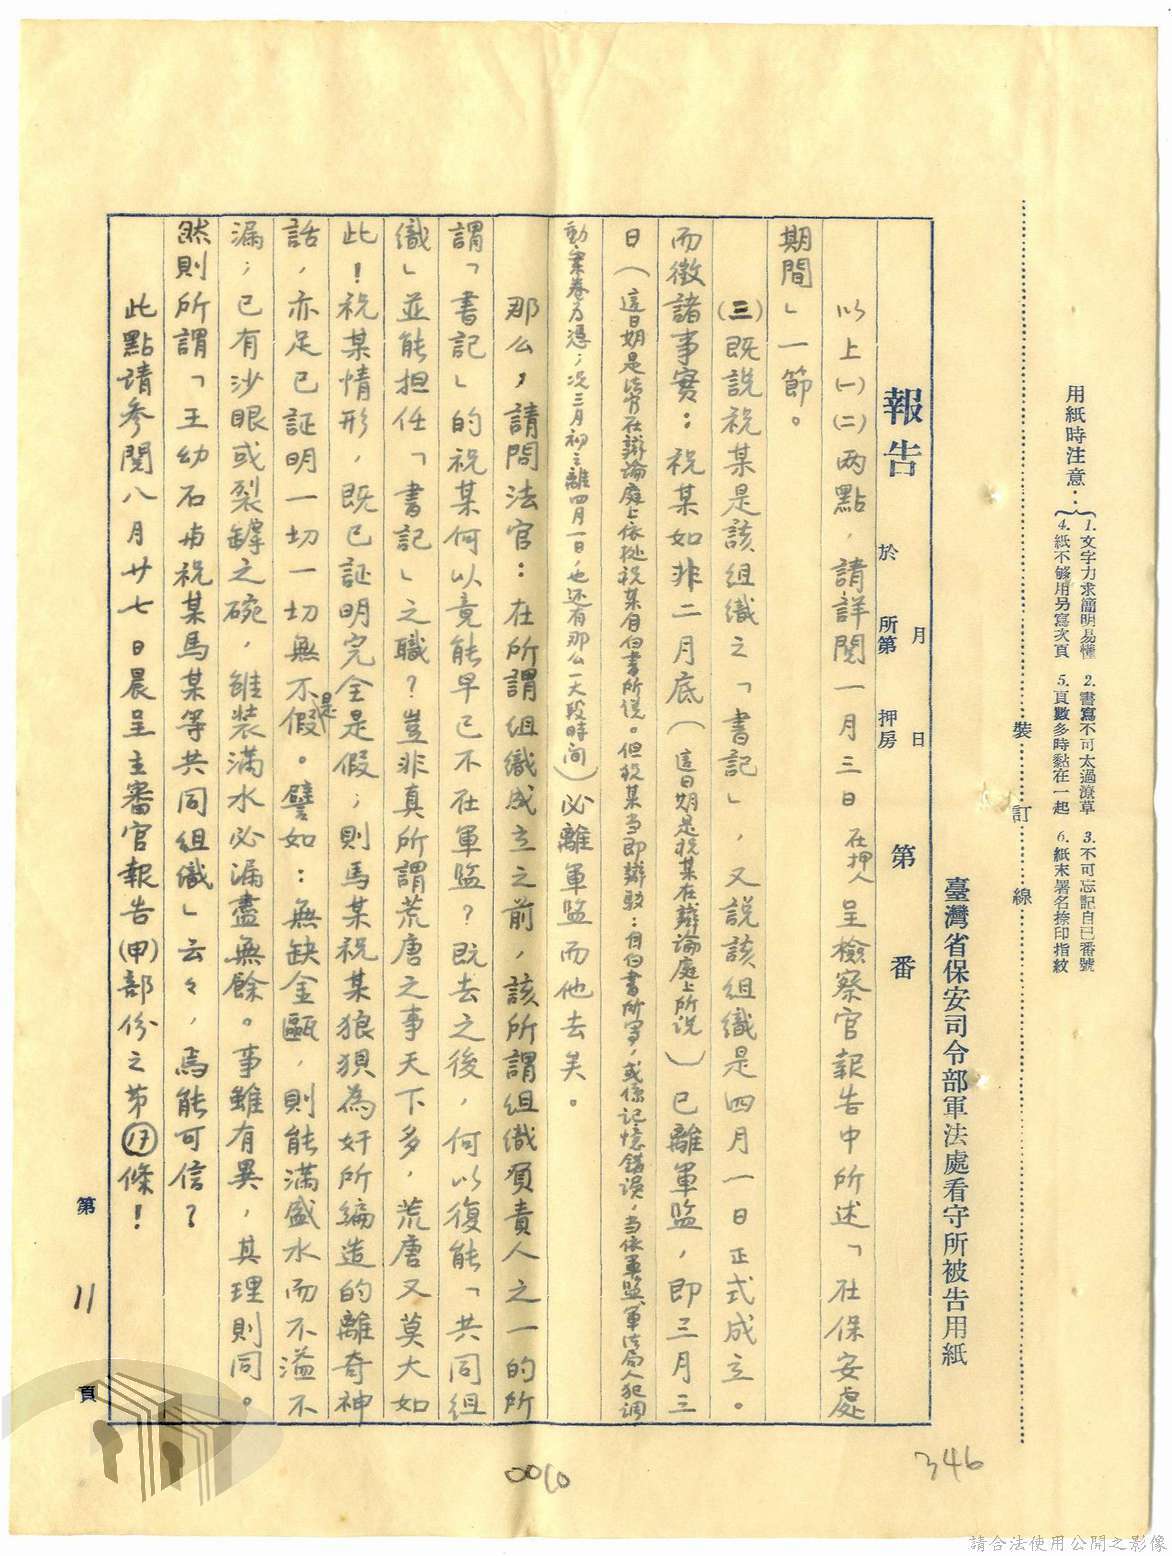 用紙時注意：
1.文字力求簡明易懂 2.書寫不可太過潦草 3.不可忘記自己番號
4.紙不够用另寫次頁 5.頁數多時黏在一起 6.紙末署名捺印指紋
裝 訂 線
臺灣省保安司令部軍法處看守所被告用紙
報告 於 月 日 所第 押房 第 番
以上(一)(二)两點，請詳閱一月三日在押人呈檢察官報告中所述「在保安處
期間」一節。
(三)既説祝某是該組織之「書記」，又説該組織是四月一日正式成立。
而徵諸事实：祝某如非二月底（這日期是祝某在辯論庭上所说）已離軍監，即三月三
日（這日期是法官在辯論庭上依据祝某自白書所说。但祝某当即辯駁：自白書所寫，或係记憶錯誤，当依軍監軍法局人犯調
動案卷为憑；况三月初之離四月一日，也还有那么一大段時间）必離軍監而他去矣。
那么，請問法官：在所謂組織成立之前，該所謂組織負責人之一的所
謂「書記」的祝某何以竟能早已不在軍監？既去之後，何以復能「共同組
織」並能担任「書記」之職？豈非真所謂荒唐之事天下多，荒唐又莫大如
此！祝某情形，既已証明完全是假；則馬某祝某狼狽為奸所編造的離奇神
話，亦足已証明一切一切無不是假。譬如：無缺金甌，則能滿盛水而不溢不
漏；已有沙眼或裂罅之碗，雖装滿水必漏盡無餘。事雖有異，其理則同。
然則所謂「王幼石由祝某馬某等共同組織」云々，焉能可信？
此點請参閱八月廿七日晨呈主審官報告(甲)部份之第⑰條！
第 11 頁
346
0010
請合法使用公開之影像